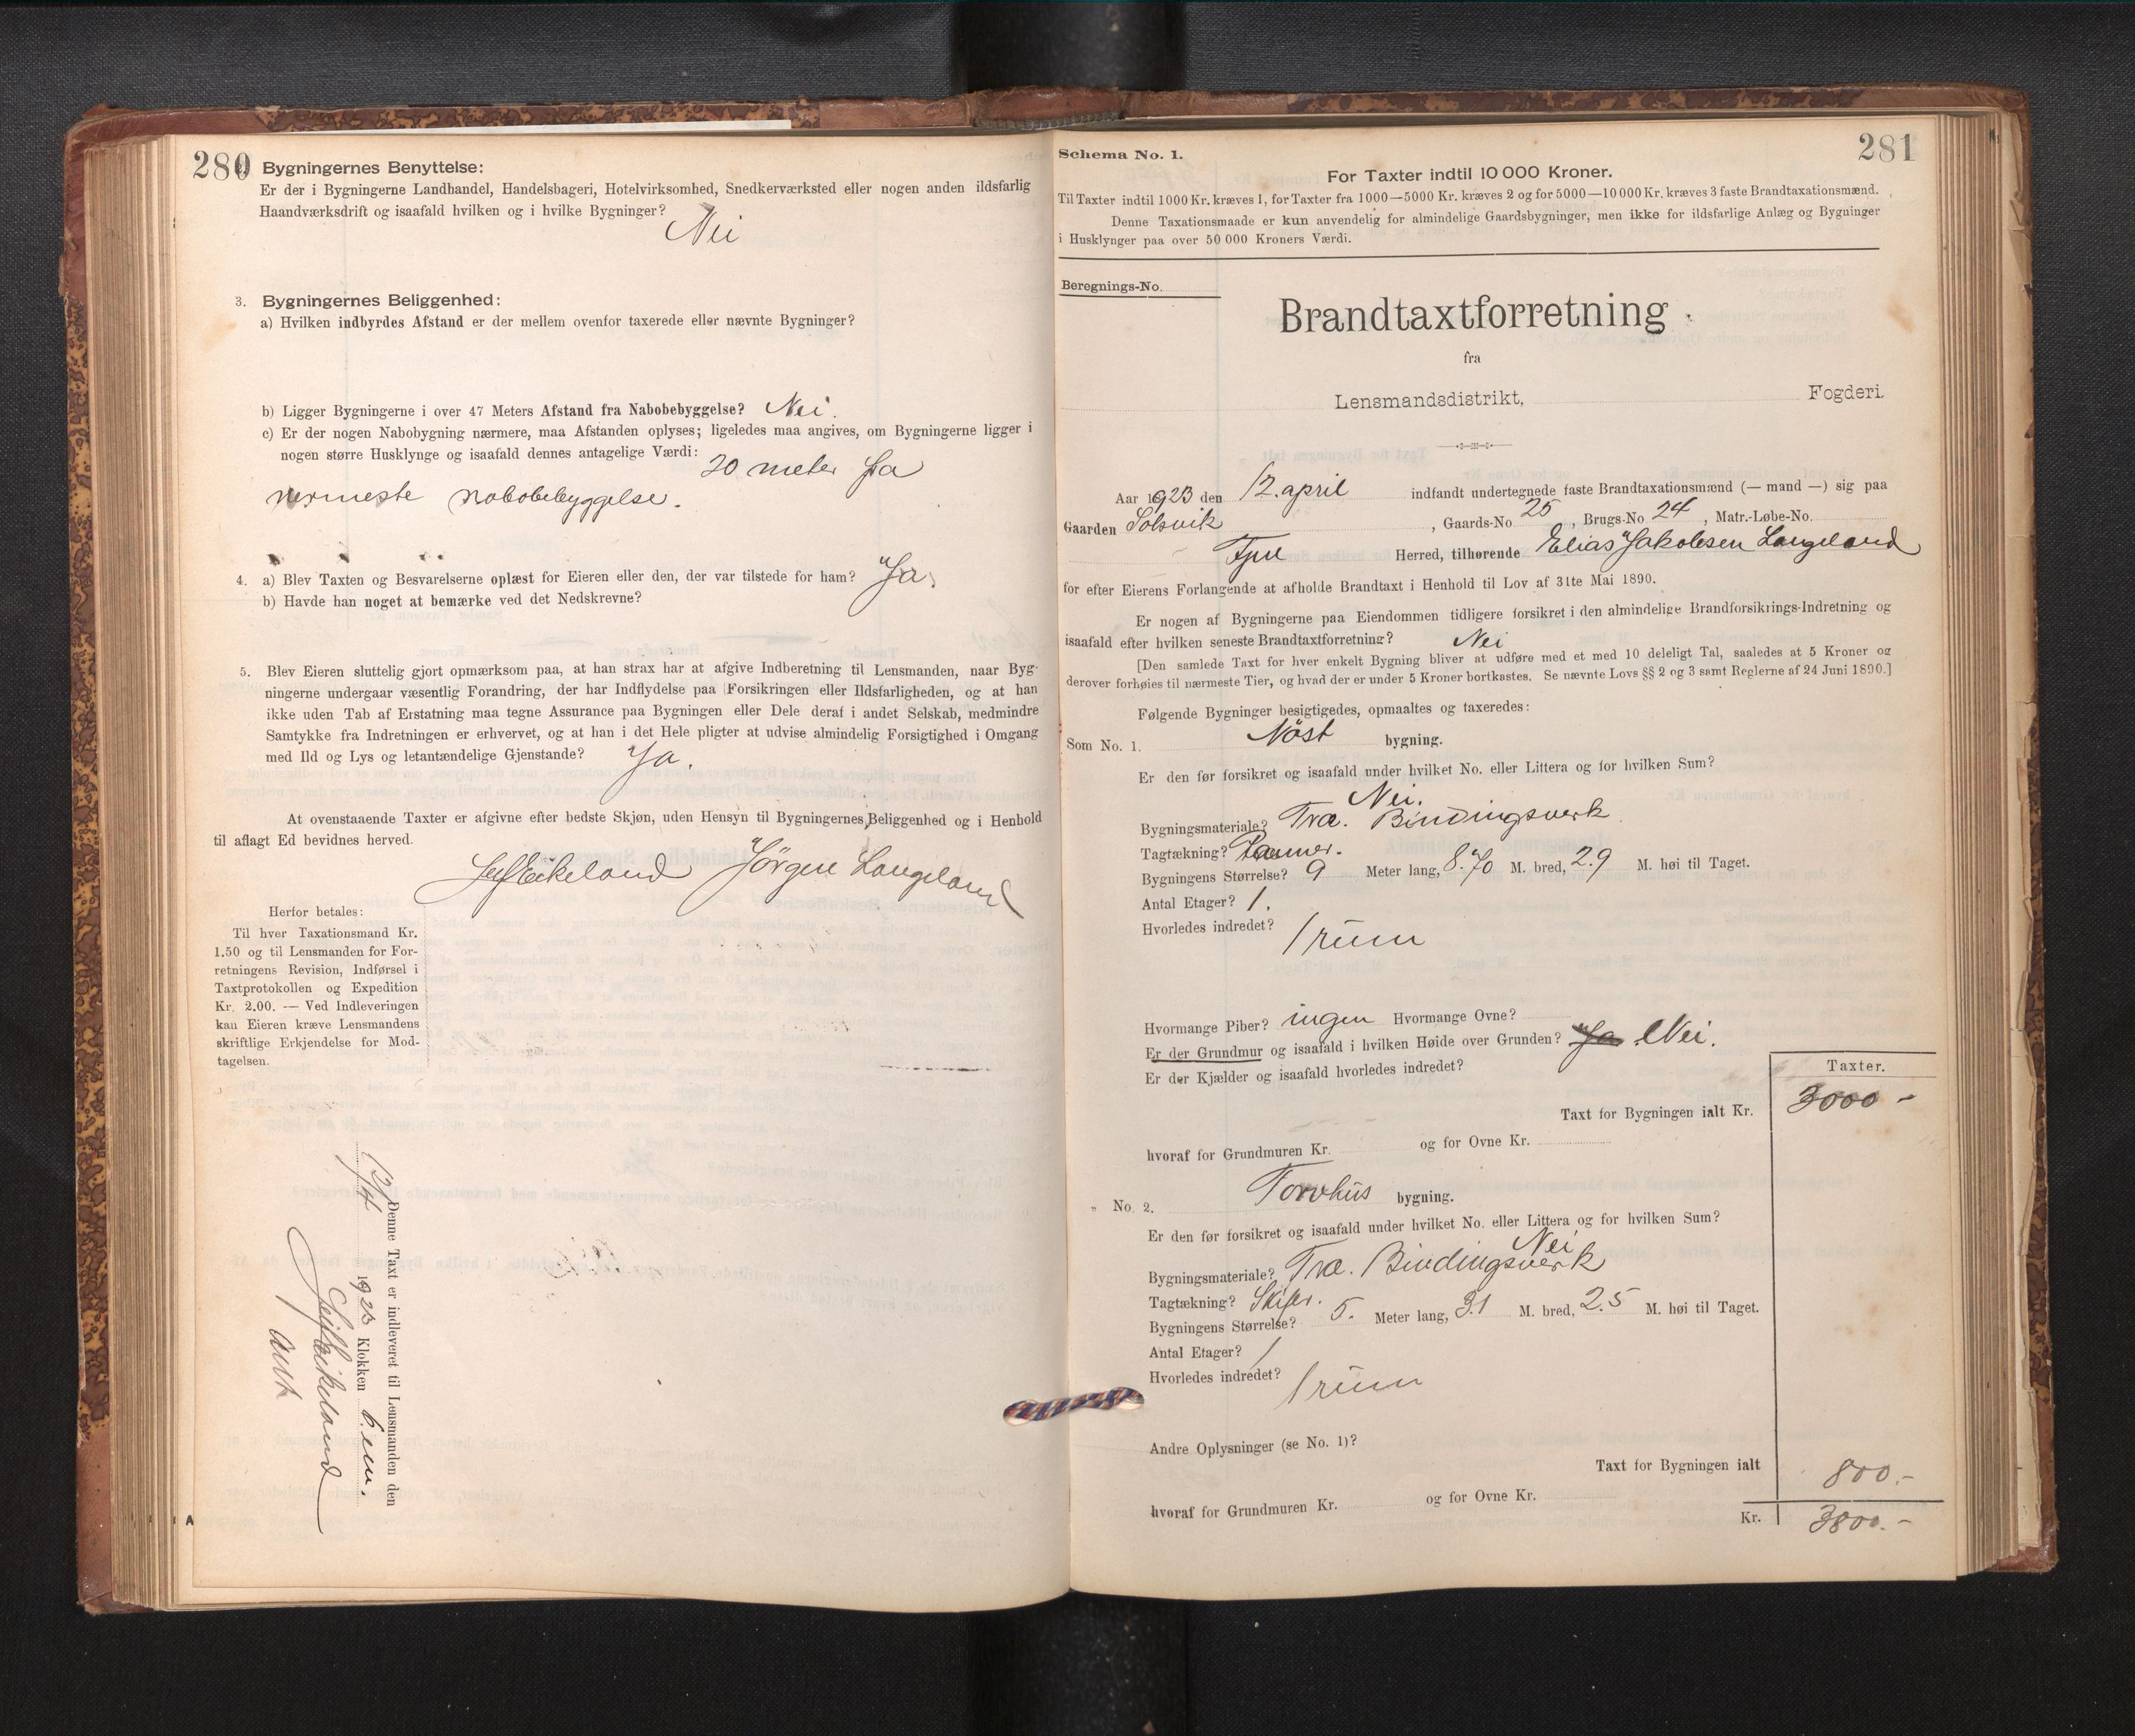 280
Bygningernes Benyttelse:
Er der i Bygningerne Landhandel, Handelsbageri, Hotelvirksomhed, Snedkerværksted eller nogen anden ildsfarlig
Haandværksdrift og isaafald hvilken og i hvilke Bygninger?
Nei
3. Bygningernes Beliggenhed:
a) Hvilken indbyrdes Afstand er der mellem ovenfor taxerede eller nævnte Bygninger?
b) Ligger Bygningerne i over 47 Meters Afstand fra Nabobebyggelse? Nei.
c) Er der nogen Nabobygning nærmere, maa Afstanden oplyses; ligeledes maa angives, om Bygningerne ligger i
nogen større Husklynge og isaafald dennes antagelige Værdi: 20 meter fra
nermeste nabobebyggelse.
4. a) Blev Taxten og Besvarelserne oplæst for Eieren eller den, der var tilstede for ham? Ja.
b) Havde han noget at bemærke ved det Nedskrevne?
5. Blev Eieren sluttelig gjort opmærksom paa, at han strax har at afgive Indberetning til Lensmanden, naar Byg-
ningerne undergaar væsentlig Forandring, der har Indflydelse paa Forsikringen eller Ildsfarligheden, og at han
ikke uden Tab af Erstatning maa tegne Assurance paa Bygningen eller Dele deraf i andet Selskab, medmindre
Samtykke fra Indretningen er erhvervet, og at han i det Hele pligter at udvise almindelig Forsigtighed i Omgang
med Ild og Lys og letantændelige Gjenstande? Ja.
At ovenstaaende Taxter er afgivne efter bedste Skjøn, uden Hensyn til Bygningernes Beliggenhed og i Henhold
til aflagt Ed bevidnes herved.
Leif Eikeland Jörgen Langeland
Herfor betales:
Til hver Taxationsmand Kr.
1.50 og til Lensmanden for For-
retningens Revision, Indførsel i
Taxtprotokollen og Expedition
Kr. 2.00. — Ved Indleveringen
kan Eieren kræve Lensmandens
skriftlige Erkjendelse for Mod-
tagelsen.
Denne Taxt er indleveret til Lensmanden den
1923 Klokken 6 em.
Leif Eikeland
A
281
Schema No. 1.
For Taxter indtil 10 000 Kroner.
Til Taxter indtil 1000 Kr. kræves 1, for Taxter fra 1000—5000 Kr. kræves 2 og for 5000—10 000 Kr. kræves 3 faste Brandtaxationsmænd.
Denne Taxationsmaade er kun anvendelig for almindelige Gaardsbygninger, men ikke for ildsfarlige Anlæg og Bygninger
i Husklynger paa over 50 000 Kroners Værdi.
Beregnings-No.
Brandtaxtforretning
fra
Lensmandsdistrikt, Fogderi.
Aar 1923 den 12. april indfandt undertegnede faste Brandtaxationsmænd (— mand —) sig paa
Gaarden Solsvik, Gaards-No 25, Brugs-No 24, Matr.-Løbe-No.
Fjell Herred, tilhørende Elias Jakobsen Langeland
for efter Eierens Forlangende at afholde Brandtaxt i Henhold til Lov af 31te Mai 1890.
Er nogen af Bygningerne paa Eiendommen tidligere forsikret i den almindelige Brandforsikrings-Indretning og
isaafald efter hvilken seneste Brandtaxtforretning? Nei
[Den samlede Taxt for hver enkelt Bygning bliver at udføre med et med 10 deleligt Tal, saaledes at 5 Kroner og
derover forhøies til nærmeste Tier, og hvad der er under 5 Kroner bortkastes. Se nævnte Lovs §§ 2 og 3 samt Reglerne af 24 Juni 1890.]
Følgende Bygninger besigtigedes, opmaaltes og taxeredes:
Som No. 1. Nöst bygning.
Er den før forsikret og isaafald under hvilket No. eller Littera og for hvilken Sum?
Nei.
Bygningsmateriale? Træ. Bindingsverk
Tagtækning? Panner.
Bygningens Størrelse? 9 Meter lang, 8.70 M. bred, 2.9 M. høi til Taget.
Antal Etager? 1.
Hvorledes indredet? 1 rum
Hvormange Piber? ingen Hvormange Ovne?
Er der Grundmur og isaafald i hvilken Høide over Grunden? Ja Nei.
Er der Kjælder og isaafald hvorledes indredet?
Taxter.
Taxt for Bygningen ialt Kr. 3000 -
hvoraf for Grundmuren Kr. og for Ovne Kr.
" No. 2. Torvhus bygning.
Er den før forsikret og isaafald under hvilket No. eller Littera og for hvilken Sum?
Nei
Bygningsmateriale? Træ. Bindingsverk
Tagtækning? Skifer.
Bygningens Størrelse? 5. Meter lang, 3.1 M. bred, 2.5 M. høi til Taget.
Antal Etager? 1
Hvorledes indredet? 1 rum
Andre Oplysninger (se No. 1)?
Taxt for Bygningen ialt 800.-
hvoraf for Grundmuren Kr. og for Ovne Kr.
Kr. 3800.-